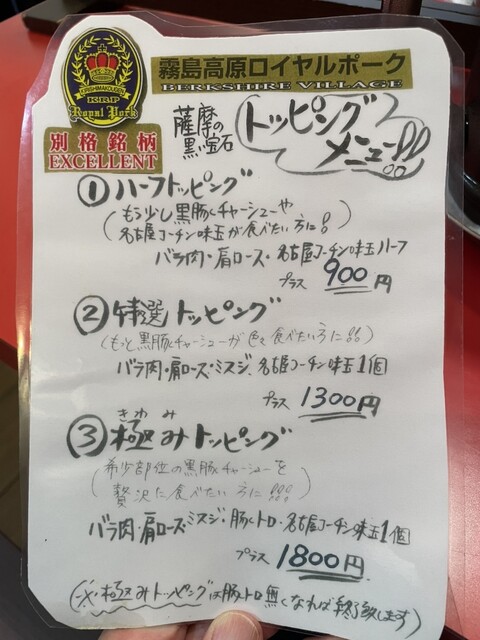 KIRISHIMAKOUGEN
KRP
Royal Pork
別格銘柄
EXCELLENT
霧島高原ロイヤルポーク
BERKSHIRE VILLAGE
薩摩の
黒い宝石
トッピング
メニュー!!
① ハーフトッピング
(もう少し黒豚チャーシューや
名古屋コーチン味玉が食べたい方に!)
バラ肉・肩ロース・名古屋コーチン味玉ハーフ
プラス 900円
② 特選トッピング
(もっと黒豚チャーシューが色々食べたい方に!!)
バラ肉・肩ロース・ミスジ・名古屋コーチン味玉1個
プラス 1300円
きわみ
③ 極みトッピング
(希少部位の黒豚チャーシューを
贅沢に食べたい方に!!!)
バラ肉・肩ロース・ミスジ・豚トロ・名古屋コーチン味玉1個
プラス 1800円
(※極みトッピングは豚トロ無くなれば終了致します)